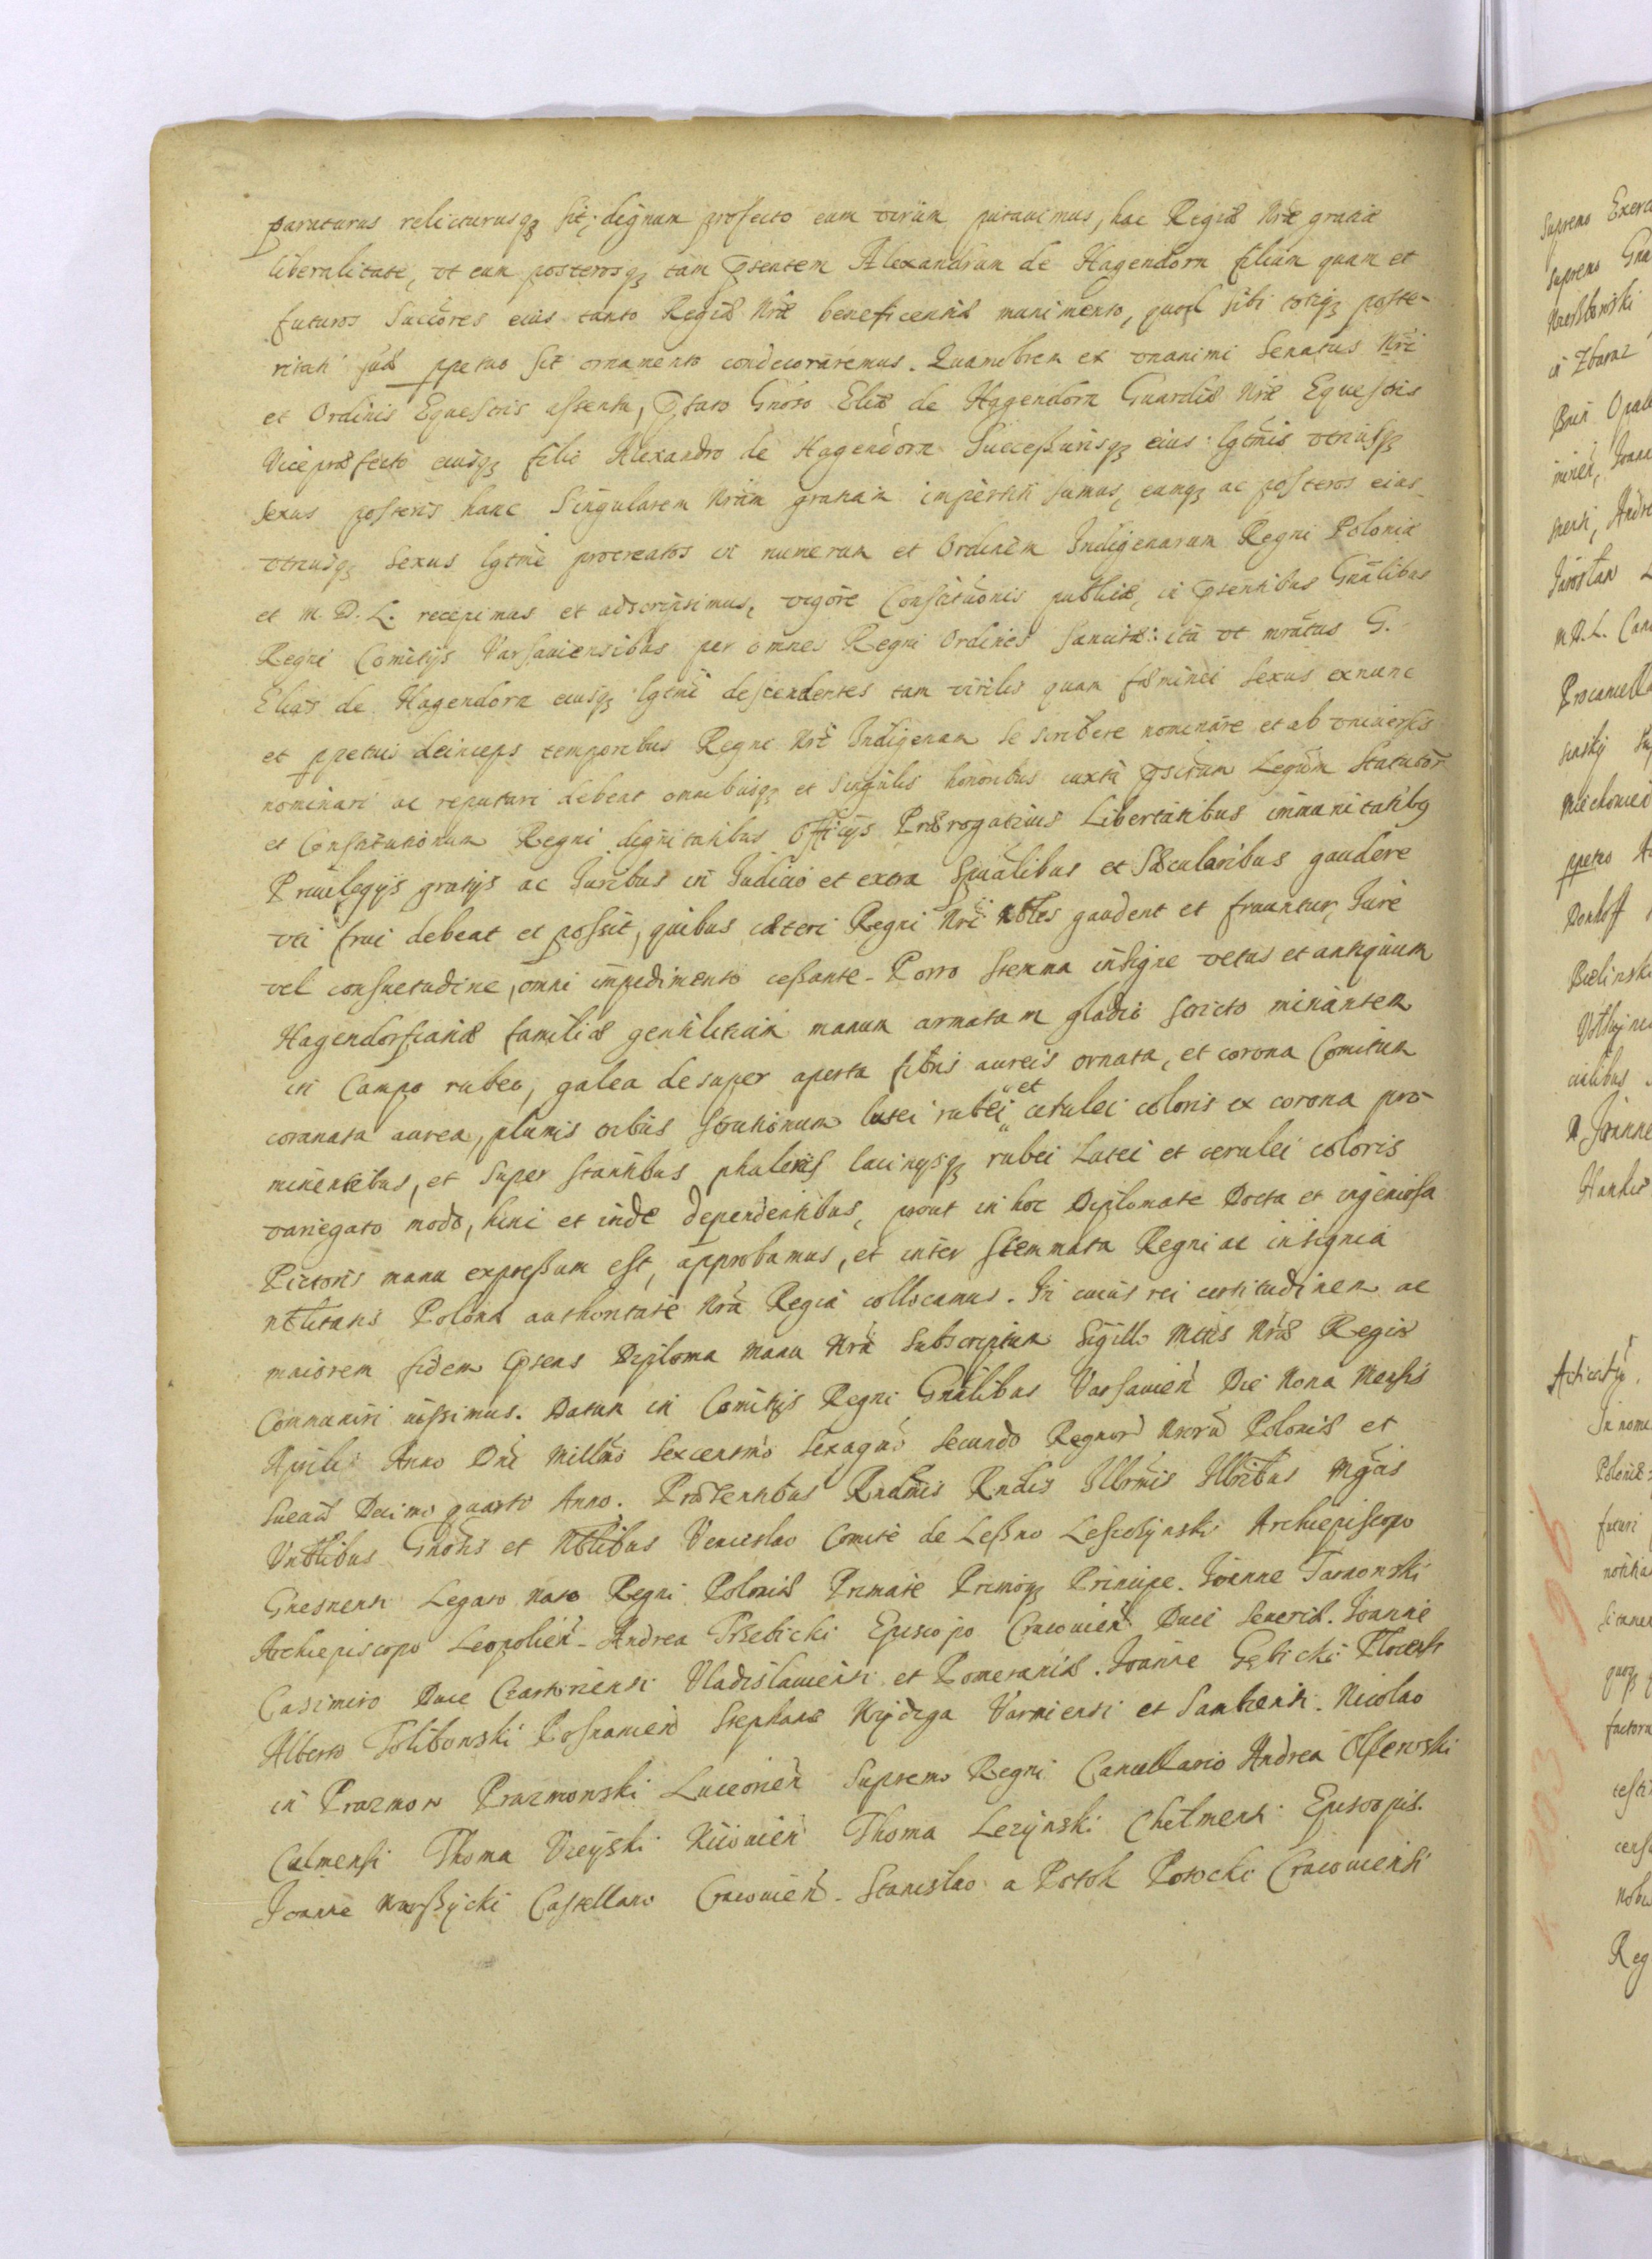 paraturus relicturusq sit; dignum profecto eum virum putauimus, hac Regiæ Nræ gratiæ
liberalitate, vt eum posterosq tam pñtem Alexandrum de Hagendorn filium quam et
futuros Succores eius tanto Regiæ Nræ beneficentiæ munimento, quod sibi totiq poste-
ritati suæ ppetuo sit ornamento condecoraremus. Quamobrem ex vnanimi Senatus Nri
et Ordinis Equestris assensu, Gnoso Eliæ de Hagendorn Guardiæ Nræ Equestris
Vice præfecto eiusq filio Alexandro de Hagendorn Successurisq eius lgtmis vtriusq
sexus posteris hanc Singularem Nram gratiam impertiti sumus, eumq ac posteros eius
vtriusq sexus lgtme procreatos in numerum et Ordinem Indigenarum Regni Poloniæ
et M. D. L. recepimus et adscripsimus, vigore Constituonis publicæ, in pñtibus Gnalibus
Regni Comitijs Varsauiensibus per omnes Regni Ordines sancitæ: ita vt mratus G.
Elias de Hagendorn eiusq lgtme descendentes tam virilis quam fæminei sexus ex nunc
et ppetuis deinceps temporibus Regni Nri Indigenam se scribere nominare et ab vniuersis
nominari ac reputari debent omnibusq et singulis honoribus iuxta Legum Statutor
et Constitutionum Regni dignitatibus Officijs Prærogatiuis Libertatibus immunitatibq
Priuilegijs gratijs ac Iuribus in Iudicio et extra Spualibus et Sæcularibus gaudere
vti frui debeat et possit, quibus cæteri Regni Nri Nbles gaudent et fruuntur, Iure
vel consuetudine, omni impedimento cessante. Porro Stemma insigne vetus et antiquum
Hagendorfianæ familiæ gentilitium manum armatam gladio stricto minantem
in Campo rubeo, galea desuper aperta fibris aureis ornata, et corona Comitum
coronata aurea, plumis tribus Strutionum lutei rubei et cerulei coloris ex corona pro-
minentibus, et super stantibus phaleris lacinijsq rubei Lutei et cerulei coloris
variegato modo, hinc et inde dependentibus, prout in hoc Diplomate Docta et ingeniosa
Pictoris manu expressum est, approbamus, et inter Stemmata Regni ac insignia
nblitatis Polonæ authoritate Nra Regia collocamus. In cuius rei certitudinem ac
maiorem fidem pñs Diploma Manu Nra Subscriptum Sigillo Mttis Nræ Regiæ
Communiri iussimus. Datum in Comitijs Regni Gnalibus Varsauien Die Nona Mensis
Aprilis Anno Dni Millmo Sexcentmo Sexagmo Secundo Regnor Nrorum Poloniæ et
Sueciæ Decimo quarto Anno. Præsentibus Rndmis Rndis Illrmis Illribus Mgcis
Vnblibus Gnosis et Nblibus Venceslao Comite de Lessno Lesczynski Archiepiscopo
Gnesnensi Legato Nato Regni Poloniæ Primate Primoq Principe. Ioanne Tarnowski
Archiepiscopo Leopolien. Andrea Trzebicki Episcopo Cracouien Duce Seueriæ. Ioanne
Casimiro Duce Czartoriensi Vladislauiensi et Pomeraniæ. Ioanne Gębicki Plocensi
Alberto Tolibowski Posnanien Stephano Wydzga Varmiensi et Sambiensi. Nicolao
in Prazmow Prazmowski Luceorien Supremo Regni Cancellario Andrea Olszewski
Culmensi Thoma Vieyski Kiiouien Thoma Lezynski Chelmensi Episcopis.
Ioanne Warszycki Castellano Cracouien. Stanislao a Potok Potocki Cracouiensi